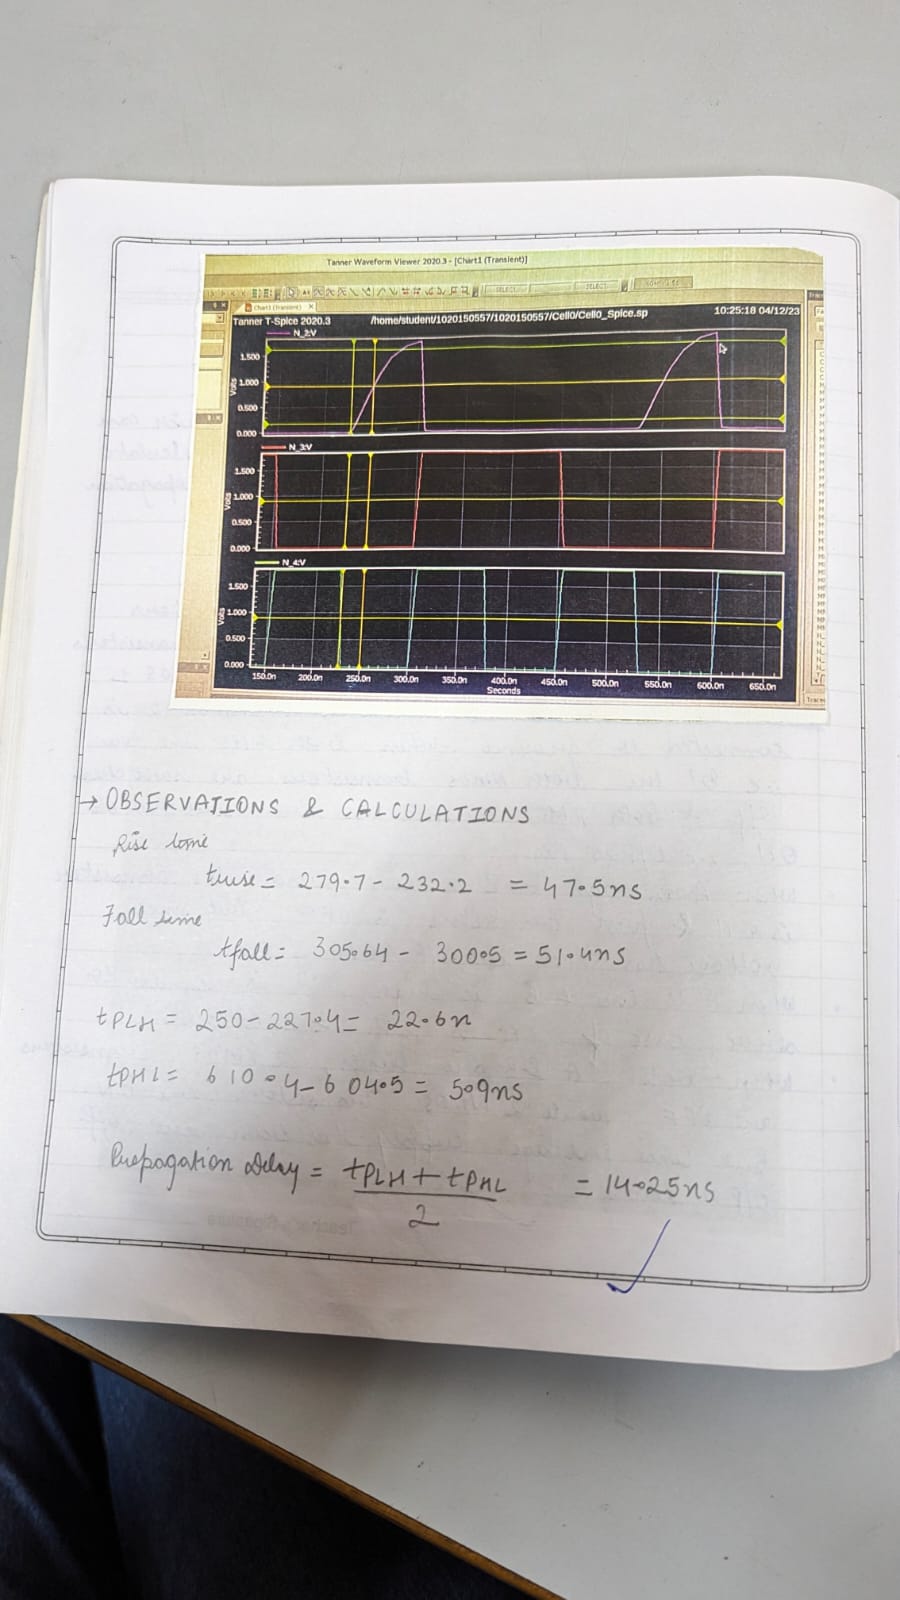 Tanner Waveform Viewer 2020.3 - [Chart1 (Transient)]
SELECT
SELECT
Chart1 (Transient) X
Tanner T-Spice 2020.3 /home/student/1020150557/1020150557/Cell0/Cell0_Spice.sp 10:25:18 04/12/23
N_2:V
1.500
1.000
0.500
0.000
Volts
N_3:V
1.500
1.000
0.500
0.000
Volts
N_4:V
1.500
1.000
0.500
0.000
Volts
150.0n 200.0n 250.0n 300.0n 350.0n 400.0n 450.0n 500.0n 550.0n 600.0n 650.0n
Seconds
→ OBSERVATIONS & CALCULATIONS
Rise time
trise = 279.7 - 232.2 = 47.5ns
Fall time
tfall = 305.64 - 300.5 = 51.4ns
tPLH = 250 - 227.4 = 22.6n
tPHL = 610.4 - 604.5 = 5.9ns
Propagation Delay = tPLH + tPHL / 2 = 14.25ns